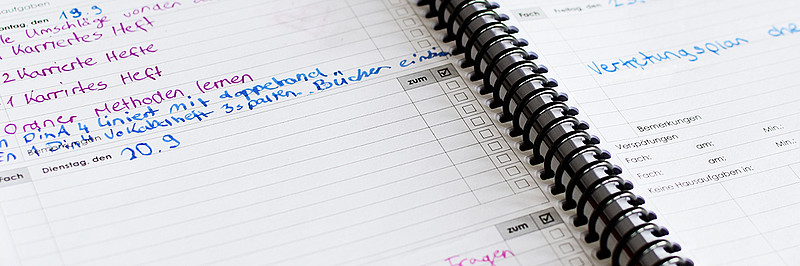 ausaufgaben
ontag, den 19.9
le Umschläge vonden
1 Karriertes Heft
2 Karrierte Hefte
1 Karrirtes Heft
Ordner Methoden lernen
n DinA 4 Liniert mit doppelrand
En 1 DinA Vokabelheft 3spalten. Bücher
Bemerkungen
zum
Fach
Dienstag, den 20.9
zum
Fragen
Fach
Freitag, den 23.
Vertretungsplan
Bemerkungen
Verspätungen
Fach: am: Min.:
Fach: am: Min.:
Keine Hausaufgaben in: